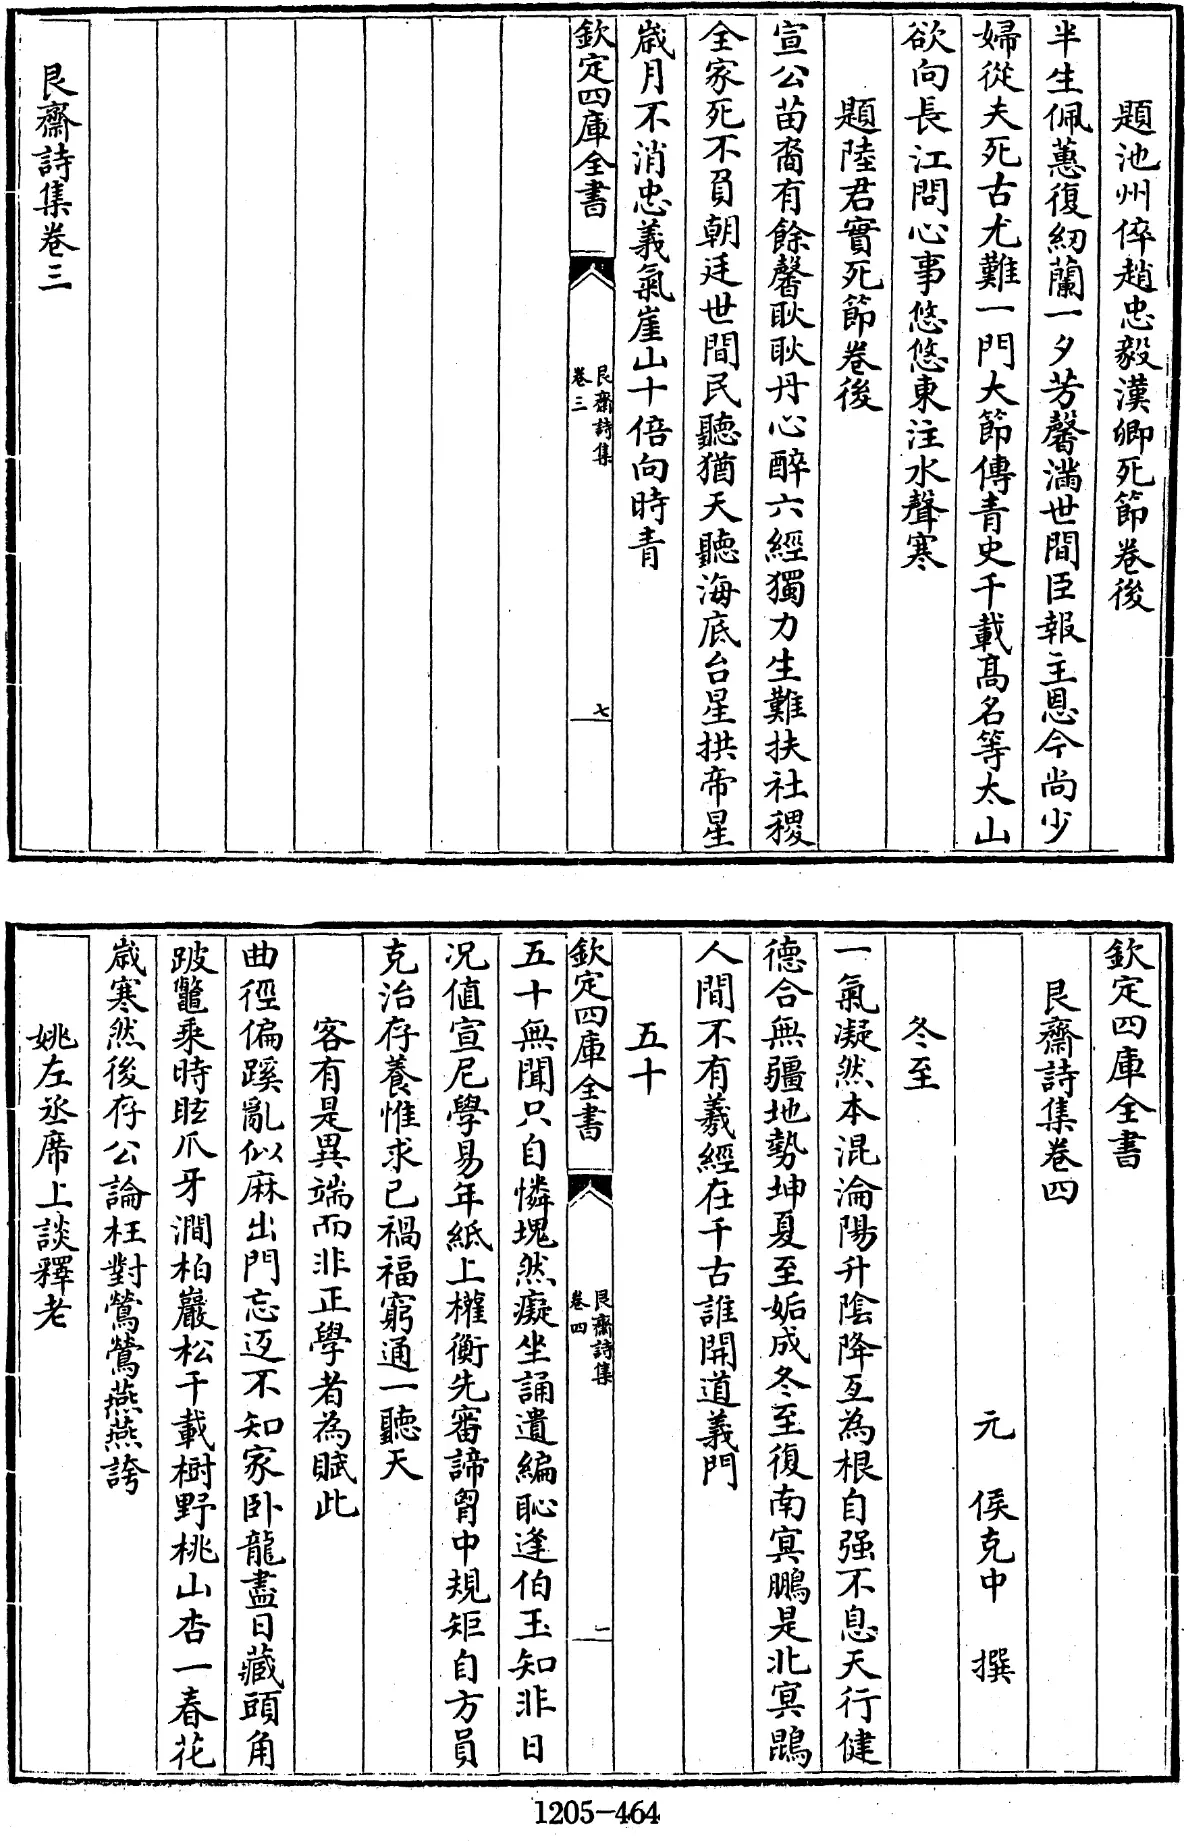 題池州倅趙忠毅漢卿死節卷後
半生佩蕙復紉蘭一夕芳馨滿世間臣報主恩今尚少
婦從夫死古尤難一門大節傳青史千載髙名等太山
欲向長江問心事悠悠東注水聲寒
題陸君實死節卷後
宣公苗裔有餘馨耿耿丹心醉六經獨力生難扶社稷
全家死不負朝廷世間民聽猶天聽海底台星拱帝星
歲月不消忠義氣崖山十倍向時青
欽定四庫全書
艮齋詩集
卷三
七
艮齋詩集卷三
欽定四庫全書
艮齋詩集卷四
元 侯克中 撰
冬至
一氣凝然本混淪陽升陰降互為根自强不息天行健
德合無疆地勢坤夏至姤成冬至復南冥鵬是北冥鵾
人間不有羲經在千古誰開道義門
五十
欽定四庫全書
艮齋詩集
卷四
一
五十無聞只自憐塊然癡坐誦遺編恥逢伯玉知非日
况值宣尼學易年紙上權衡先審諦胷中規矩自方員
克治存養惟求已禍福窮通一聽天
客有是異端而非正學者為賦此
曲徑偏蹊亂似麻出門忘返不知家卧龍盡日藏頭角
跛鼈乘時眩爪牙澗柏巖松千載樹野桃山杏一春花
歲寒然後存公論枉對鶯鶯燕燕誇
姚左丞席上談釋老
1205-464